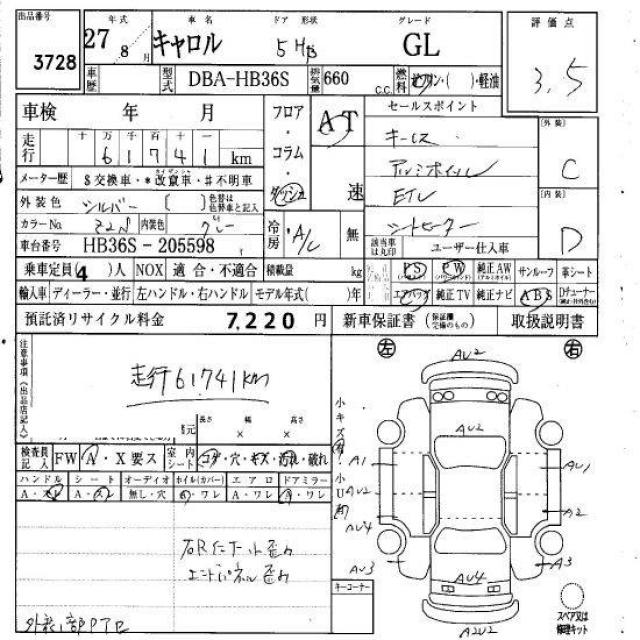 出品番号
3728
年式
27年
8月
車名
キャロル
ドア 形状
5 HB
グレード
GL
評価点
3.5
車歴
型式
DBA-HB36S
排気量
660
c.c.
燃料
ガソリン・( )・軽油
車検 年 月
走行
十 万 千 百 十 一
6 1 7 4 1 km
メーター歴
$交換車・*改竄車・#不明車
外装色
シルバー
( )
色替は色替車と記入
カラーNo.
Z2S
内装色
グレー
車台番号
HB36S-205598
フロア・コラム・ダッシュ
AT
速
冷房
A/C
無
セールスポイント
キーレス
アルミホイール
ETC
シートヒーター
該当車は丸印
ユーザー仕入車
[外装]
C
[内装]
D
乗車定員( 4 )人
NOX
適合・不適合
積載量
kg
PS
PW
純正AW
サンルーフ
革シート
輸入車
ディーラー・並行
左ハンドル・右ハンドル
モデル年式( )年
エアバッグ
純正TV
純正ナビ
ABS
Dチューナー
預託済リサイクル料金
7,220 円
新車保証書
(保証欄完備のもの)
取扱説明書
注意事項(出品店記入)
走行61741km
諸元
長さ
幅
高さ
× ×
検査員記入
FW
A・X要ス
室内シート
コゲ・穴・キズ・汚れ・破れ
ハンドル
シート
オーディオ
ホイル(カバー)
エアロ
ドアミラー
A・スレ
A・スレ
無し・穴
A・ワレ
A・ワレ
A・ワレ
エンドパネル歪み
外装1部PTロ
小キズ有!
小U有
左
右
AU2
AU2
A1
AU2
AU4
AU3
AU1
A2
A3
AU4
A2U2
キーコーナー
スペア又は修理キット